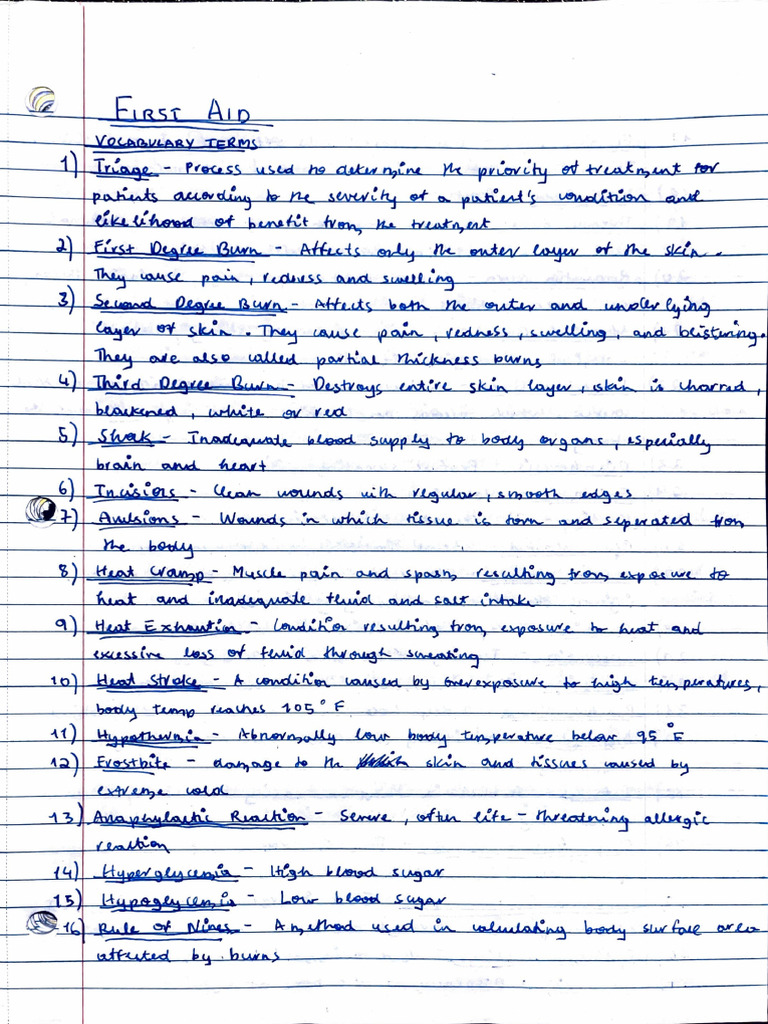 FIRST AID
VOCABULARY TERMS
1) Triage - Process used to determine the priority of treatment for
patients according to the severity of a patient's condition and
likelihood of benefit from the treatment
2) First Degree Burn - Affects only the outer layer of the skin.
They cause pain, redness and swelling
3) Second Degree Burn - Affects both the outer and underlying
layer of skin. They cause pain, redness, swelling, and blistering.
They are also called partial thickness burns
4) Third Degree Burn - Destroys entire skin layer, skin is charred,
blackened, white or red
5) Shock - Inadequate blood supply to body organs, especially
brain and heart
6) Incisions - Clean wounds with regular, smooth edges
7) Avulsions - Wounds in which tissue is torn and seperated from
the body
8) Heat Cramp - Muscle pain and spasm resulting from exposure to
heat and inadequate fluid and salt intake
9) Heat Exhaution - Condition resulting from exposure to heat and
excessive loss of fluid through sweating
10) Heat Stroke - A condition caused by overexposure to high temperatures,
body temp reaches 105° F
11) Hypothermia - Abnormally low body temperature below 95° F
12) Frostbite - damage to the skin and tissues caused by
extreme cold
13) Anaphylactic Reaction - Severe, often life-threatening allergic
reaction
14) Hyperglycemia - High blood sugar
15) Hypoglycemia - Low blood sugar
16) Rule of Nines - A method used in calculating body surface area
affected by burns